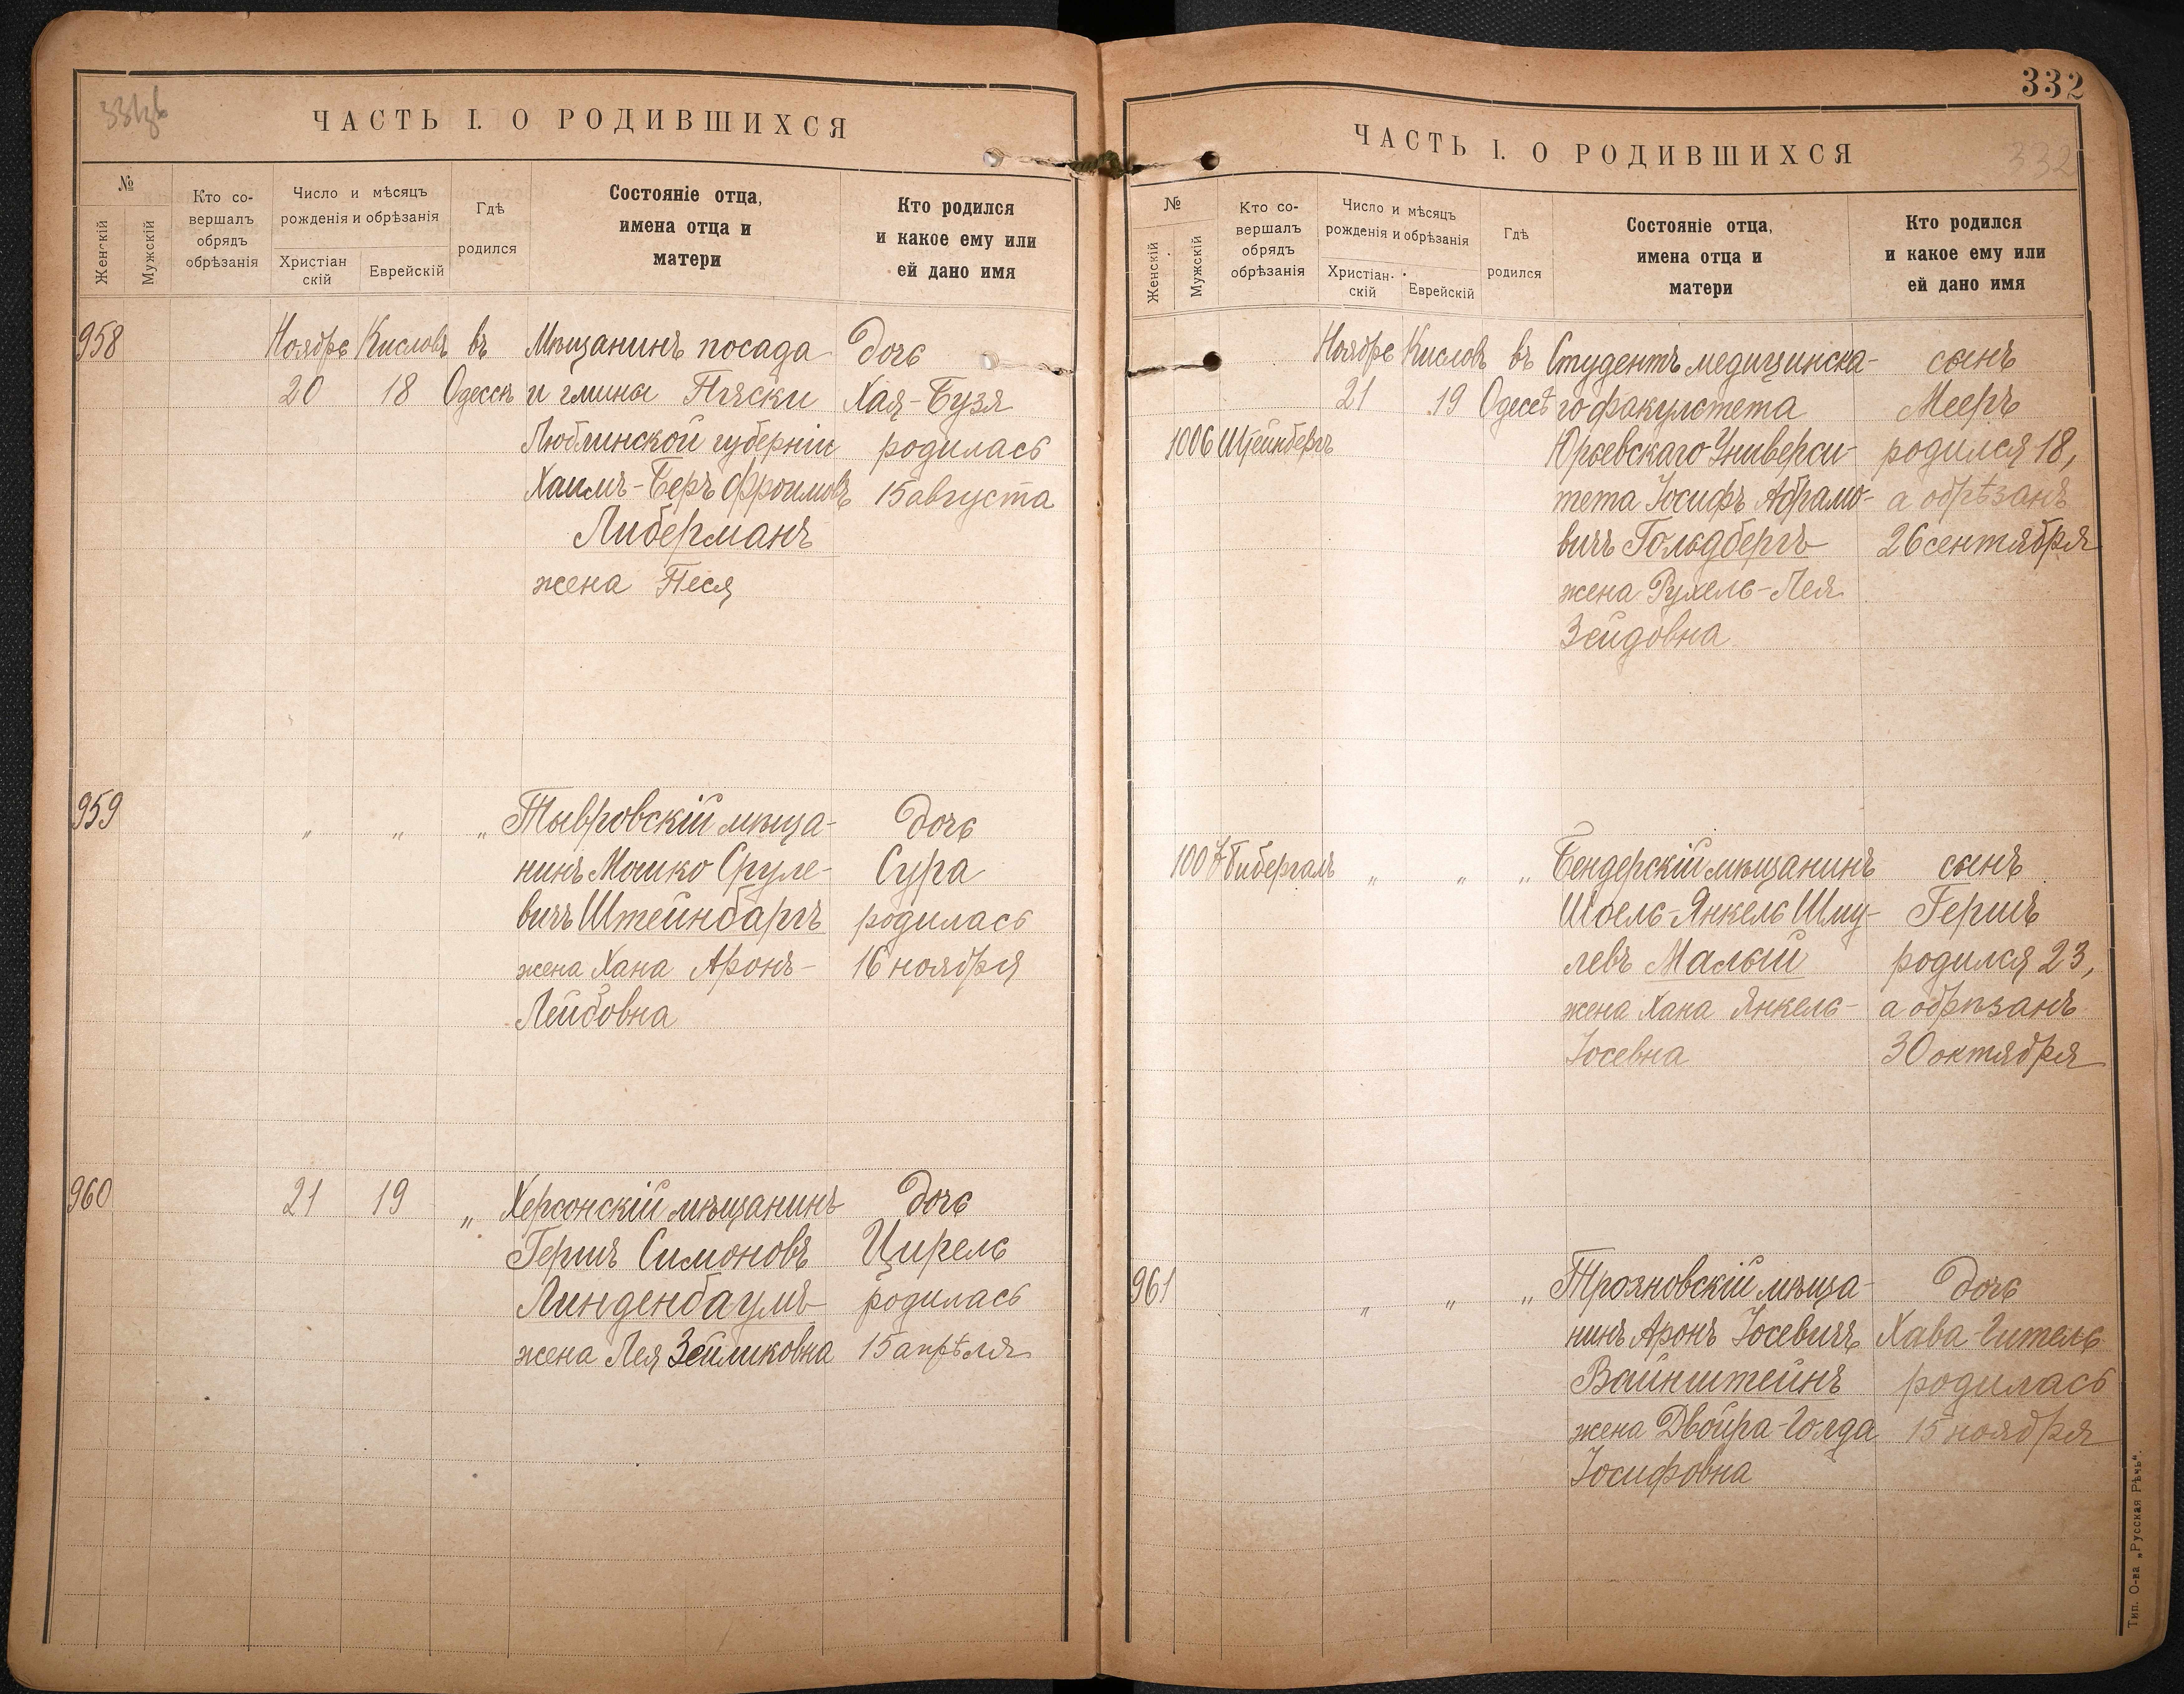 ЧАСТЬ I. О РОДИВШИХСЯ
№
Женскій
Мужскій
Кто со-
вершалъ
обрядъ
обрѣзанія
Число и мѣсяцъ
рожденія и обрѣзанія
Христіан
скій
Еврейскій
Гдѣ
родился
Состояніе отца,
имена отца и
матери
Кто родился
и какое ему или
ей дано имя
958 Ноябрь Кисловъ въ Мѣщанинъ посада дочь
20 18 Одессѣ и гмины Пяски Хая-Бузя
Люблинской губерніи родилась
Хаимъ-Беръ Фроимовъ 15 августа
Либерманъ
жена Песя
959 „ „ „ Тывровскій мѣща- дочь
нинъ Мошко Сруле- Сура
вичъ Штейнбаргъ родилась
жена Хана Аронъ- 16 ноября
Лейбовна
960 21 19 „ Херсонскій мѣщанинъ дочь
Гершъ Симоновъ Цирель
Линденбаумъ родилась
жена Лея Зейликовна 15 апрѣля
332
ЧАСТЬ I. О РОДИВШИХСЯ
332
№
Женскій
Мужскій
Кто со-
вершалъ
обрядъ
обрѣзанія
Число и мѣсяцъ
рожденія и обрѣзанія
Христіан-
скій
Еврейскій
Гдѣ
родился
Состояніе отца,
имена отца и
матери
Кто родился
и какое ему или
ей дано имя
Ноябрь Кисловъ въ Студентъ медицинска- сынъ
21 19 Одессѣ го факультета Мееръ
1006 Штейнбергъ Юрьевскаго Универси- родился 18,
тета Іосифъ Абрамо- а обрѣзанъ
вичъ Гольдбергъ 26 сентября
жена Рухель-Лея
Зейдовна
1007 Бибергалъ „ „ „ Бендерскій мѣщанинъ сынъ
Шоель-Янкель Шму- Гершъ
левъ Малый родился 23,
жена Хана Янкель- а обрѣзанъ
Іосевна 30 октября
961 „ „ „ Трояновскій мѣща- дочь
нинъ Аронъ Іосевичъ Хава-Гитель
Вайнштейнъ родилась
жена Двойра-Голда 15 ноября
Іосифовна
Тип. О-ва „Русская Рѣчь“.